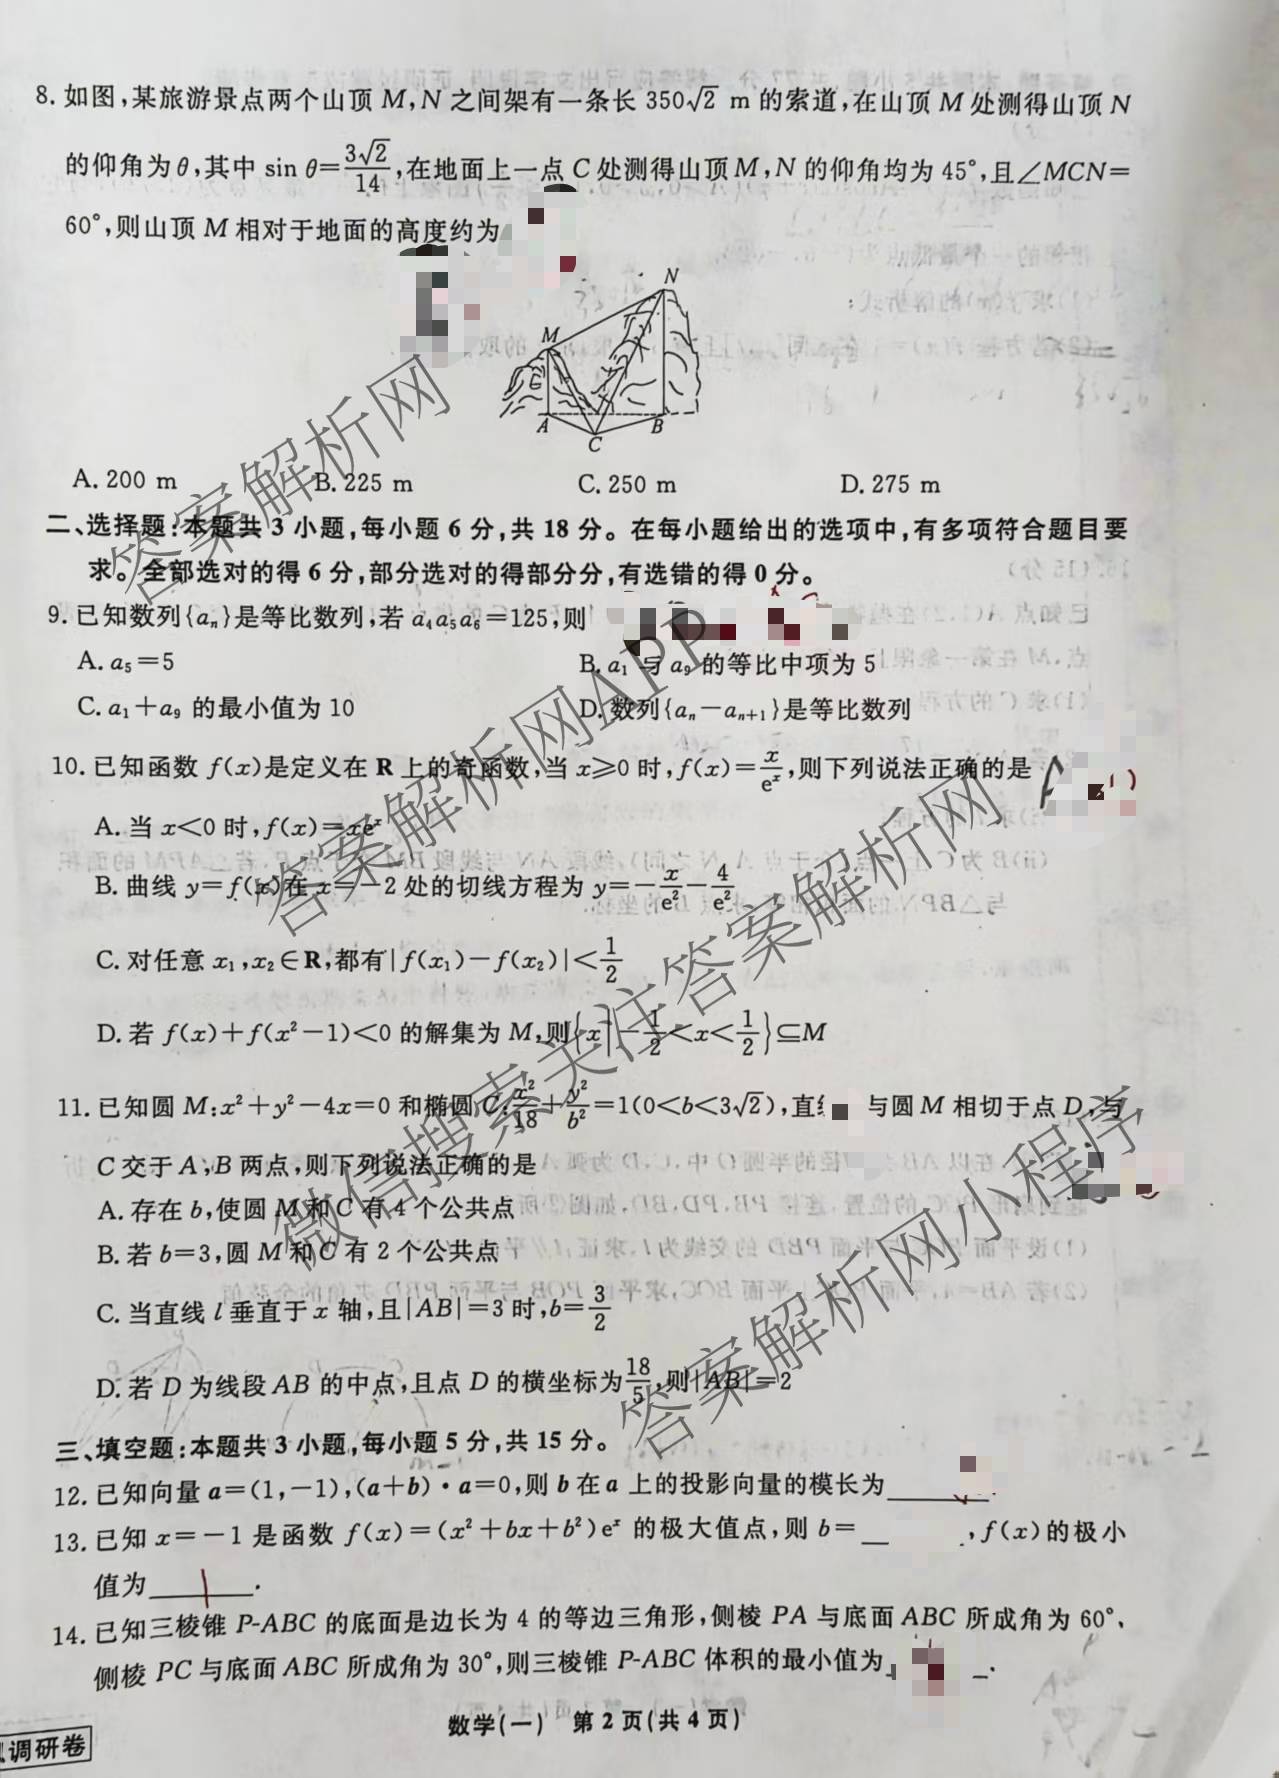 8. 如图,某旅游景点两个山顶 M,N 之间架有一条长 350√2 m 的索道,在山顶 M 处测得山顶 N
的仰角为 θ,其中 sin θ=3√2/14,在地面上一点 C 处测得山顶 M,N 的仰角均为 45°,且∠MCN=
60°,则山顶 M 相对于地面的高度约为
N
M
A
B
C
A. 200 m B. 225 m C. 250 m D. 275 m
二、选择题:本题共 3 小题,每小题 6 分,共 18 分。在每小题给出的选项中,有多项符合题目要
求。全部选对的得 6 分,部分选对的得部分分,有选错的得 0 分。
9. 已知数列{aₙ}是等比数列,若 a₄a₅a₆=125,则
A. a₅=5 B. a₁ 与 a₉ 的等比中项为 5
C. a₁+a₉ 的最小值为 10 D. 数列{aₙ-aₙ₊₁}是等比数列
10. 已知函数 f(x)是定义在 R 上的奇函数,当 x≥0 时,f(x)=x/eˣ,则下列说法正确的是
A. 当 x<0 时,f(x)=xeˣ
B. 曲线 y=f(x)在 x=-2 处的切线方程为 y=-x/e²-4/e²
C. 对任意 x₁,x₂∈R,都有|f(x₁)-f(x₂)|<1/2
D. 若 f(x)+f(x²-1)<0 的解集为 M,则{x|-1/2<x<1/2}⊆M
11. 已知圆 M:x²+y²-4x=0 和椭圆 C:x²/18+y²/b²=1(0<b<3√2),直 与圆 M 相切于点 D,与
C 交于 A,B 两点,则下列说法正确的是
A. 存在 b,使圆 M 和 C 有 4 个公共点
B. 若 b=3,圆 M 和 C 有 2 个公共点
C. 当直线 l 垂直于 x 轴,且|AB|=3 时,b=3/2
D. 若 D 为线段 AB 的中点,且点 D 的横坐标为18/5,则|AB|=2
三、填空题:本题共 3 小题,每小题 5 分,共 15 分。
12. 已知向量 a=(1,-1),(a+b)·a=0,则 b 在 a 上的投影向量的模长为______.
13. 已知 x=-1 是函数 f(x)=(x²+bx+b²)eˣ 的极大值点,则 b=__ ,f(x)的极小
值为______.
14. 已知三棱锥 P-ABC 的底面是边长为 4 的等边三角形,侧棱 PA 与底面 ABC 所成角为 60°,
侧棱 PC 与底面 ABC 所成角为 30°,则三棱锥 P-ABC 体积的最小值为______.
数学(一) 第 2 页(共 4 页)
调研卷
答案解析网
答案解析网APP
微信搜索关注答案解析网
答案解析网小程序